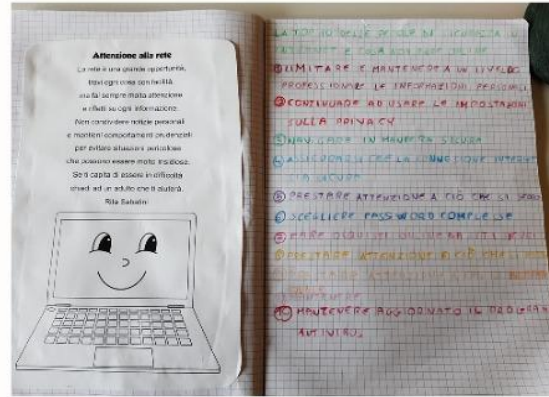 Attenzione alla rete
La rete è una grande opportunità,
trovi ogni cosa con facilità,
ma fai sempre molta attenzione
e rifletti su ogni informazione.
Non condividere notizie personali
e mantieni comportamenti prudenziali
per evitare situazioni pericolose
che possono essere molto insidiose.
Se ti capita di essere in difficoltà
chiedi ad un adulto che ti aiuterà.
Rita Sabatini
LA TOP 10 DELLE REGOLE DI SICUREZZA IN
INTERNET E COSA NON FARE ONLINE
① LIMITARE E MANTENERE A UN LIVELLO
PROFESSIONALE LE INFORMAZIONI PERSONALI
② CONTINUARE AD USARE LE IMPOSTAZIONI
SULLA PRIVACY
③ NAVIGARE IN MANIERA SICURA
④ ASSICURARSI CHE LA CONNESSIONE INTERNET
SIA SICURA
⑤ PRESTARE ATTENZIONE A CIÒ CHE SI
⑥ SCEGLIERE PASSWORD COMPLESSE
⑦ FARE ACQUISTI ONLINE DA SITI
⑧ PRESTARE ATTENZIONE A CIÒ CHE SI
⑩ MANTENERE AGGIORNATO IL PROGRAM
ANTIVIRUS